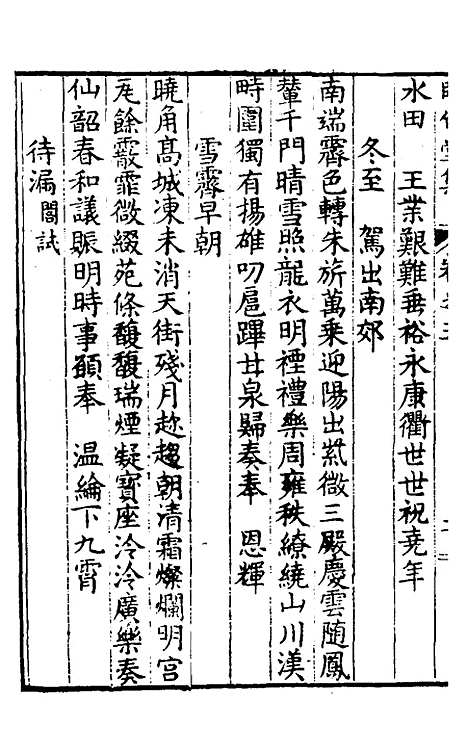 水田　王業艱難垂裕永康衢世世祝堯年
冬至　駕出南郊
南端霽色轉朱旂萬乘迎陽出紫微三殿慶雲隨鳳
輦千門晴雪照龍衣明禋禮樂周雍秩繚繞山川漢
畤圍獨有揚雄叨扈蹕甘泉歸奏奉　恩輝
雪霽早朝
曉角高城凍未消天街殘月趂趨朝清霜燦爛明宮
瓦餘霰霏微綴苑條馥馥瑞煙凝寶座泠泠廣樂奏
仙韶春和議賑明時事願奉　温綸下九霄
待漏閣試